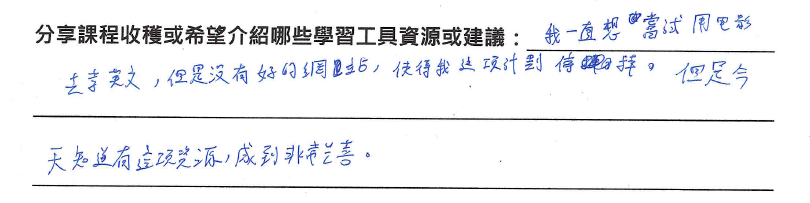 分享課程收穫或希望介紹哪些學習工具資源或建議：我一直想嘗試用电影
去学英文，但是没有好的網站，使得我这项计劃停掉。但是今
天知道有这项資源，感到非常兰喜。